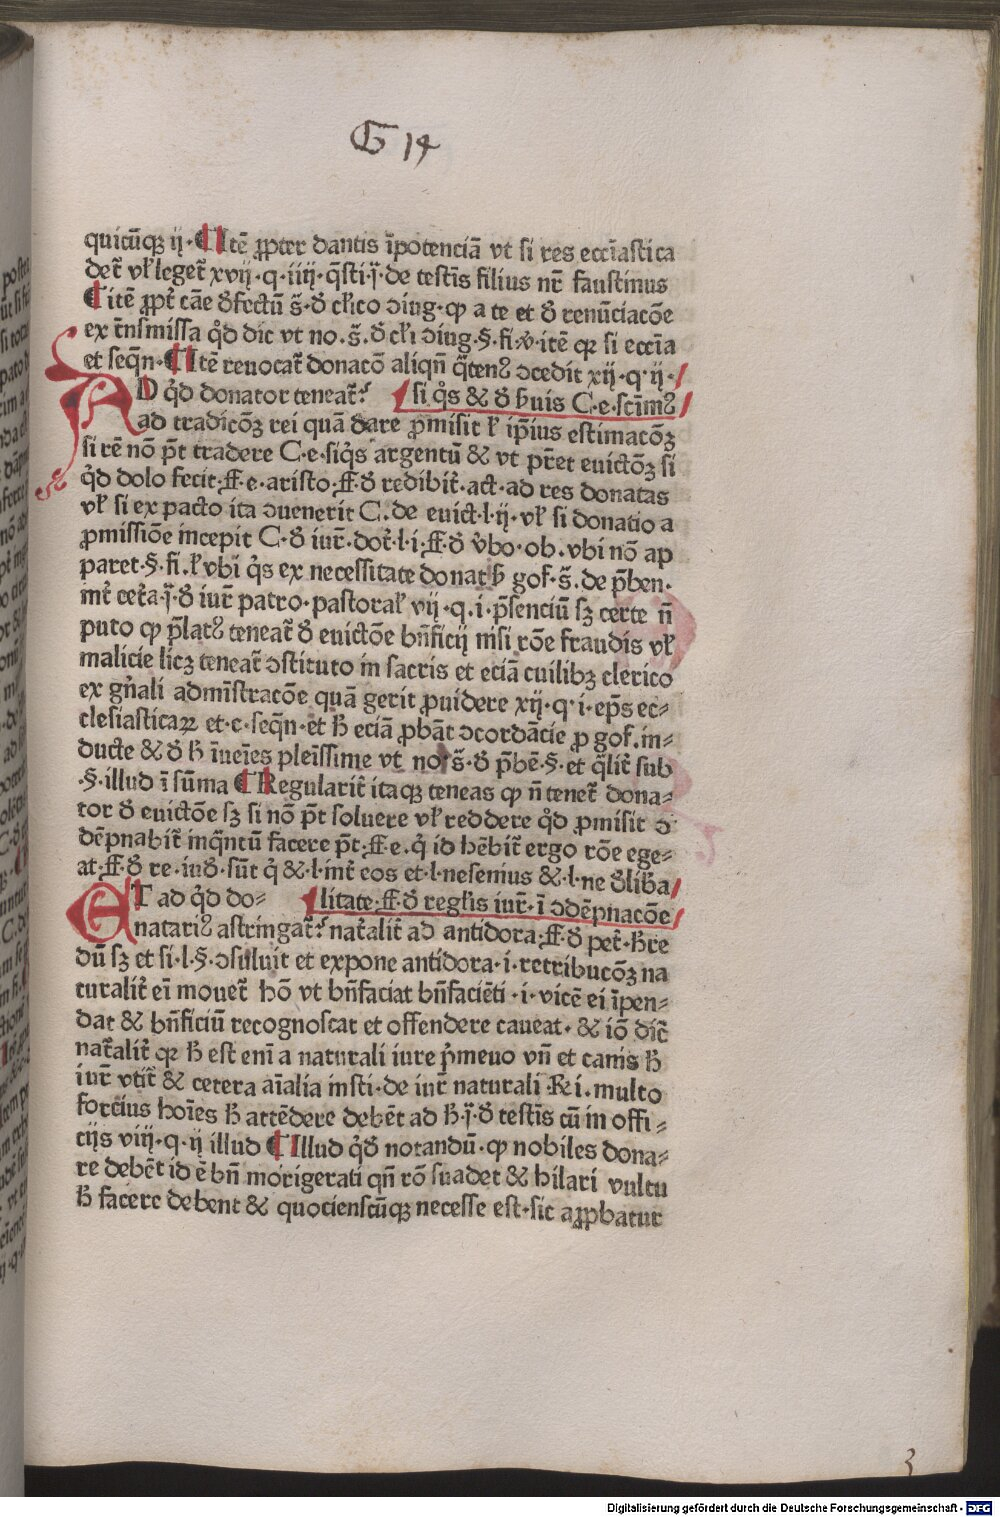 G 14
quicūqꝫ ij· ¶ Itē ꝓpter dantis īpotenciā vt si res ecciastica
det̄ vł leget̄ xvij·q·iiij·q̄sti·ī·de testīs filius nr̄ faustinus
¶ itē ꝓpt̄ cāe đfectū s̄·đ cłico ɔiug·ꝙ a te et đ renūciacōe
ex t̄nsmissa qđ dic̄ vt no.s̄.đ cłi ɔiug·§·fi·ꝟ·itē qꝛ si eccīa
et seqn̄· ¶ Itē reuocat̄ donacō aliqn̄ q̄tenꝰ ɔcedit xij·q·ij·
AD qđ donator teneat̄ᷣ si q̄s & đ b̄uis C·e·scīmꝰ
ad tradicōꝫ rei quā dare ꝓmisit ł ip̄ius estimacōꝫ
si rē nō pōt tradere C·e·siq̄s argentū & vt p̄ret euictōꝫ si
qđ dolo fecit·ff·e·aristo·ff·đ redibit̄·act·ad res donatas
vł si ex pacto ita ɔuenerit C.de euict·l·ij·vł si donatio a
ꝓmissiōe incepit C·đ iur̄·dot̄·l·i·ff·đ v̄bo·ob.vbi nō ap
paret·§·fi.ł vbi q̄s ex necessitate donat ꝧ gof·s̄.de p̄ben·
int̄ cet̄a·ī·đ iur̄ patro·pastorał vij·q.i·p̄senciū sꝫ certe n̄
puto ꝙ p̄latꝰ teneat̄ đ euictōe bn̄ficij nisi rōe fraudis vł
malicie licꝫ teneat̄ ɔstituto in sacris et eciā cuilibꝫ clerico
ex gn̄ali admīstracōe quā gerit ꝓuidere xij·q·i·ep̄s ec⸗
clesiasticaꝝ et·c·seqn̄·et ħ eciā ꝓbāt ɔcordācie ꝓ gof.in⸗
ducte & đ ħ īueīes pleīssime vt no·s̄·đ p̄bē·§·et q̄lit̄ sub
·§·illud ī sūma ¶ Regularit̄ itaqꝫ teneas ꝙ n̄ tenet̄ dona⸗
tor đ euictōe sꝫ si nō pōt soluere vł reddere qđ ꝓmisit ɔ
dēpnabit̄ inqn̄tū facere pōt·ff·e.q̄ id hēbit̄ ergo rōe ege⸗
at·ff·đ re·iuđ·sūt q̄ &·l·int̄ eos et·l·nesenius &·l·ne đliba
ET ad qđ do⸗ litate·ff·đ regłis iur̄·ī ɔdēpnacōe
natariꝰ astringat̄ᷣ nat̄alit̄ ad antidora·ff·đ pet̄·ħre
dū sꝫ et si·l·§·ɔsuluit et expone antidora·i·retribucōꝫ na
turalit̄ ei mouet̄ hō vt bn̄faciat bn̄faciēti·i·vicē ei īpen⸗
dat & bn̄ficiū recognoscat et offendere caueat·& iō dic̄
nat̄alit̄ qꝛ ħ est enī a naturali iure p̄meuo vn̄ et canis ħ
iur̄ vtit̄ & cetera aīalia insti·de iur̄ naturali·R̄ i.multo
forcius hoīes ħ attēdere debēt ad ħ·ī·đ testīs cū in offi⸗
cijs viij·q·ij illud ¶ Illud q̄đ notandū·ꝙ nobiles dona⸗
re debēt id ē bn̄ morigerati qn̄ rō suadet & hilari vultu
ħ facere debent & quocienscūqꝫ necesse est·sic aꝓpbatur
3
Digitalisierung gefördert durch die Deutsche Forschungsgemeinschaft - DFG